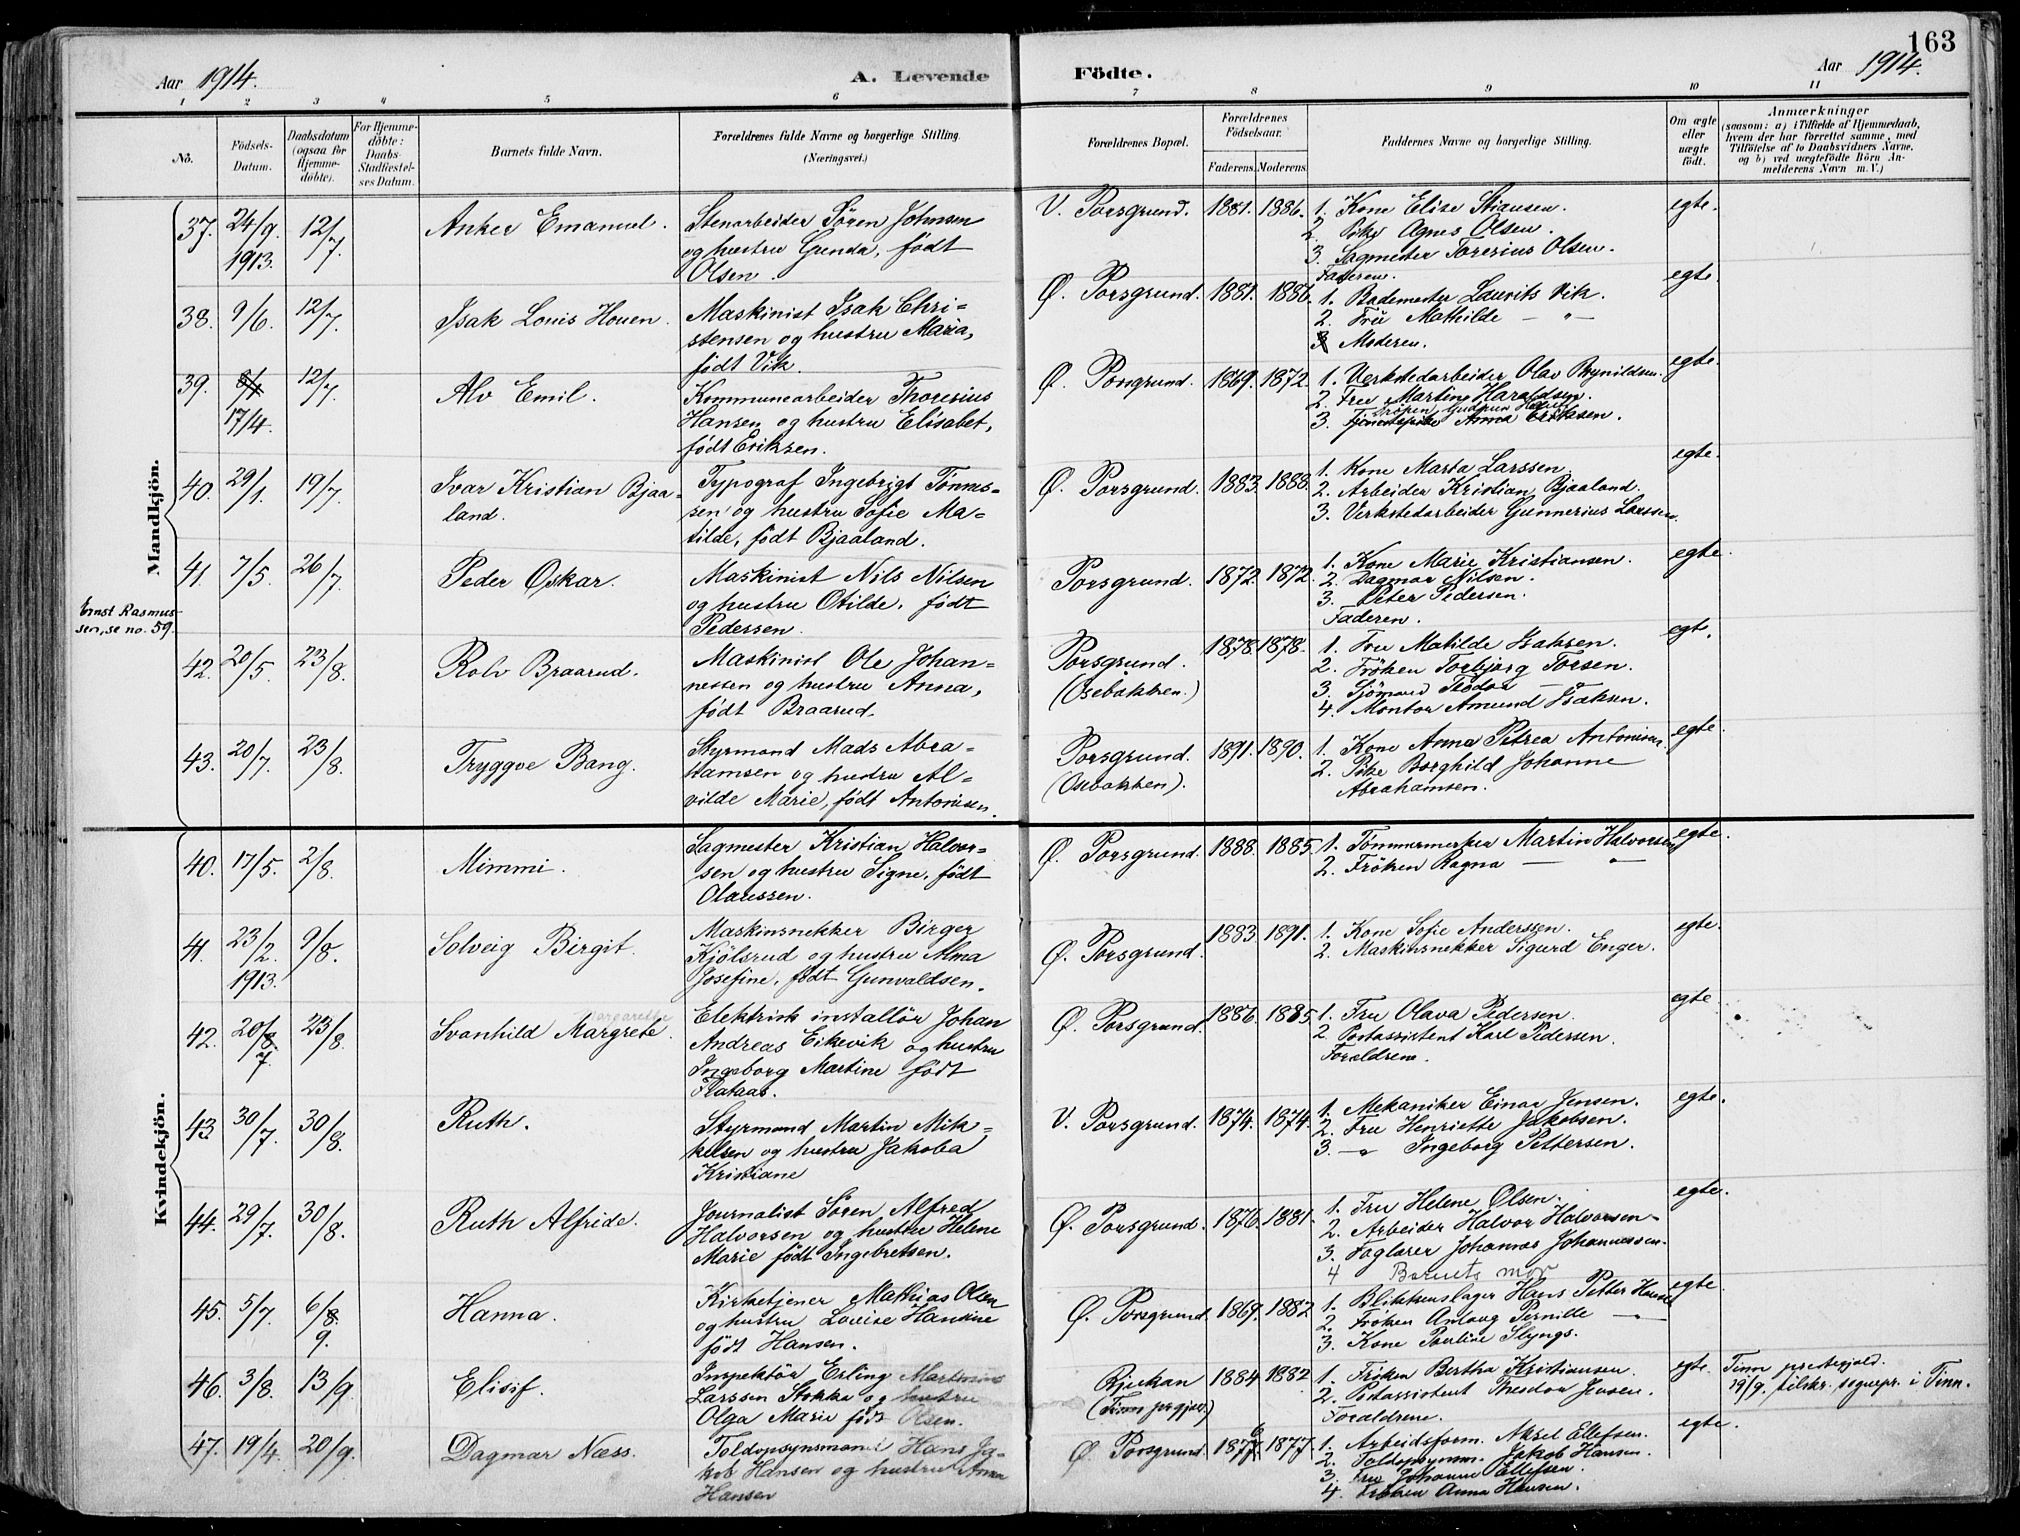 163
Aar 1914.
A. Levende Födte.
Aar 1914.
1 2 3 4 5 6 7 8 9 10 11
No.
Födsels-Datum.
Daabsdatum (ogsaa for Hjemme-döbte).
For Hjemme-döbte: Daabs-Stadfæstel-ses Datum.
Barnets fulde Navn.
Forældrenes fulde Navne og borgerlige Stilling.
(Næringsvei.)
Forældrenes Bopæl.
Forældrenes Födselsaar.
Faderens. Moderens.
Faddernes Navne og borgerlige Stilling.
Om ægte eller uægte födt.
Anmærkninger
(saasom: a) i Tilfælde af Hjemmedaab,
hvem der har forrettet samme, med
Tilföielse af to Daabsvidners Navne,
og b) ved uægtefödte Börn An-
melderens Navn m. V.)
Mandkjön.
37. 24/9. 1913. 12/7. Anker Emanuel. Stenarbeider Sören Johnsen
og hustru Gunda, født
Olsen.
V. Porsgrund. 1881. 1886. 1. Kone Elise Stiansen. egte.
2. Pike Agnes Olsen.
3. Sagmester Toresius Olsen.
Faderen.
38. 9/6. 12/7. Isak Louis Houen. Maskinist Isak Chri-
stensen og hustru Maria,
født Vik.
Ø. Porsgrund. 1881. 1886. 1. Bademester Laurits Vik. egte.
2. Fru Mathilde — " —
3 Moderen.
39. 17/4. 12/7. Alv Emil. Kommunearbeider Thoresius
Hansen og hustru Elisabet,
født Eriksen.
Ø. Porsgrund. 1869. 1872. 1. Verkstedarbeider Olav Brynildsen. egte.
2. Fru Martine Haraldsen.
Frøken Gudrun
3. Tjenestepike Anna Eriksen.
40. 29/1. 19/7. Ivar Kristian Bjaa-
land.
Typograf Ingebrigt Tønnes-
sen og hustru Sofie Ma-
tilde, født Bjaaland.
Ø. Porsgrund. 1883. 1888. 1. Kone Marta Larssen. egte.
2. Arbeider Kristian Bjaaland.
3. Verkstedarbeider Gunnerius Larssen.
41. 7/5. 26/7. Peder Oskar. Maskinist Nils Nilsen
og hustru Otilde, født
Pedersen.
Porsgrund. 1872. 1872. 1. Kone Marie Kristiansen. egte.
2. Dagmar Nilsen.
3. Peter Pedersen.
Faderen.
Ernst Rasmus-
sen, se no. 59.
42. 20/5. 23/8. Rolv Braarud. Maskinist Ole Johan-
nessen og hustru Anna,
født Braarud.
Porsgrund. (Osebakken.) 1878. 1878. 1. Fru Matilde Isaksen. egt.
2. Frøken Torbjørg Torsen.
3. Sjømand Teodor — " —
4. Montør Amund Isaksen.
43. 20/7. 23/8. Tryggve Bang. Styrmand Mads Abra-
hamsen og hustru Al-
vilde Marie, født Antonisen.
Porsgrund. (Osebakken). 1891. 1890. 1. Kone Anna Petrea Antonisen. egte.
2. Pike Borghild Johanne
Abrahamsen.
Kvindekjön.
40. 17/5. 2/8. Mimmi. Sagmester Kristian Halvor-
sen og hustru Signe, født
Olaussen.
Ø. Porsgrund. 1888. 1885. 1. Tømmermerker Martin Halvorsen egte.
2. Frøken Ragna — " —
41. 23/2. 1913. 9/8. Solveig Birgit. Maskinsnekker Birger
Kjølsrud og hustru Alma
Josefine, født Gunvaldsen.
Ø. Porsgrund. 1883. 1891. 1. Kone Sofie Anderssen. egte.
2. Maskinsnekker Sigurd Enger.
42. 20/7. 23/8. Svanhild Margrete. Elektrisk installør Johan
Andreas Eikevik og hustru
Ingeborg Martine født
Flataas.
Ø. Porsgrund. 1886. 1885. 1. Fru Olava Pedersen. egte
2. Postassistent Karl Pedersen.
Forældrene.
43. 30/7. 30/8. Ruth. Styrmand Martin Mik-
kelsen og hustru Jakoba
Kristiane
V. Porsgrund. 1874. 1874. 1. Mekaniker Einar Jensen. egte.
2. Fru Henriette Jakobsen.
3. — " Ingeborg Pettersen.
44. 29/7. 30/8. Ruth Alfride. Journalist Sören Alfred
Halvorsen og hustru Helene
Marie født Ingebretsen.
Ø. Porsgrund. 1876. 1881. 1. Fru Helene Olsen. egte.
2. Arbeider Halvor Halvorsen.
3. Faglærer Johannes Johannessen.
4 Barnets mor
45. 5/7. 6/9. Hanna. Kirketjener Mathias Olsen
og hustru Lovise Hansine
født Hansen.
Ø. Porsgrund. 1869. 1882 1. Blikkenslager Hans Petter Hansen egte
2. Frøken Anlaug Pernille — " —
3. Kone Pauline Slyngs.
46. 3/8. 13/9. Elisif. Inspektör Erling Martinius
Larssen Stokke og hustru
Olga Marie født Olsen.
Rjukan (Tinn prgjæld) 1884. 1882 1. Frøken Bertha Kristiansen. egte. Tinn prestegjæld.
2. Postassistent Theodor Jensen. 29/9. tilskr. sognepr. i Tinn.
Forældrene.
47. 19/4. 20/9. Dagmar Næss. Toldopsynsmand Hans Ja-
kob Hansen og hustru Anna
Hansen
Ø. Porsgrund. 1877. 1. Arbeidsform. Aksel Ellefsen. egte.
2. Toldopsynsm. Jakob Hansen.
3. Fru Johanne Ellefsen.
4. Frøken Anna Hansen.